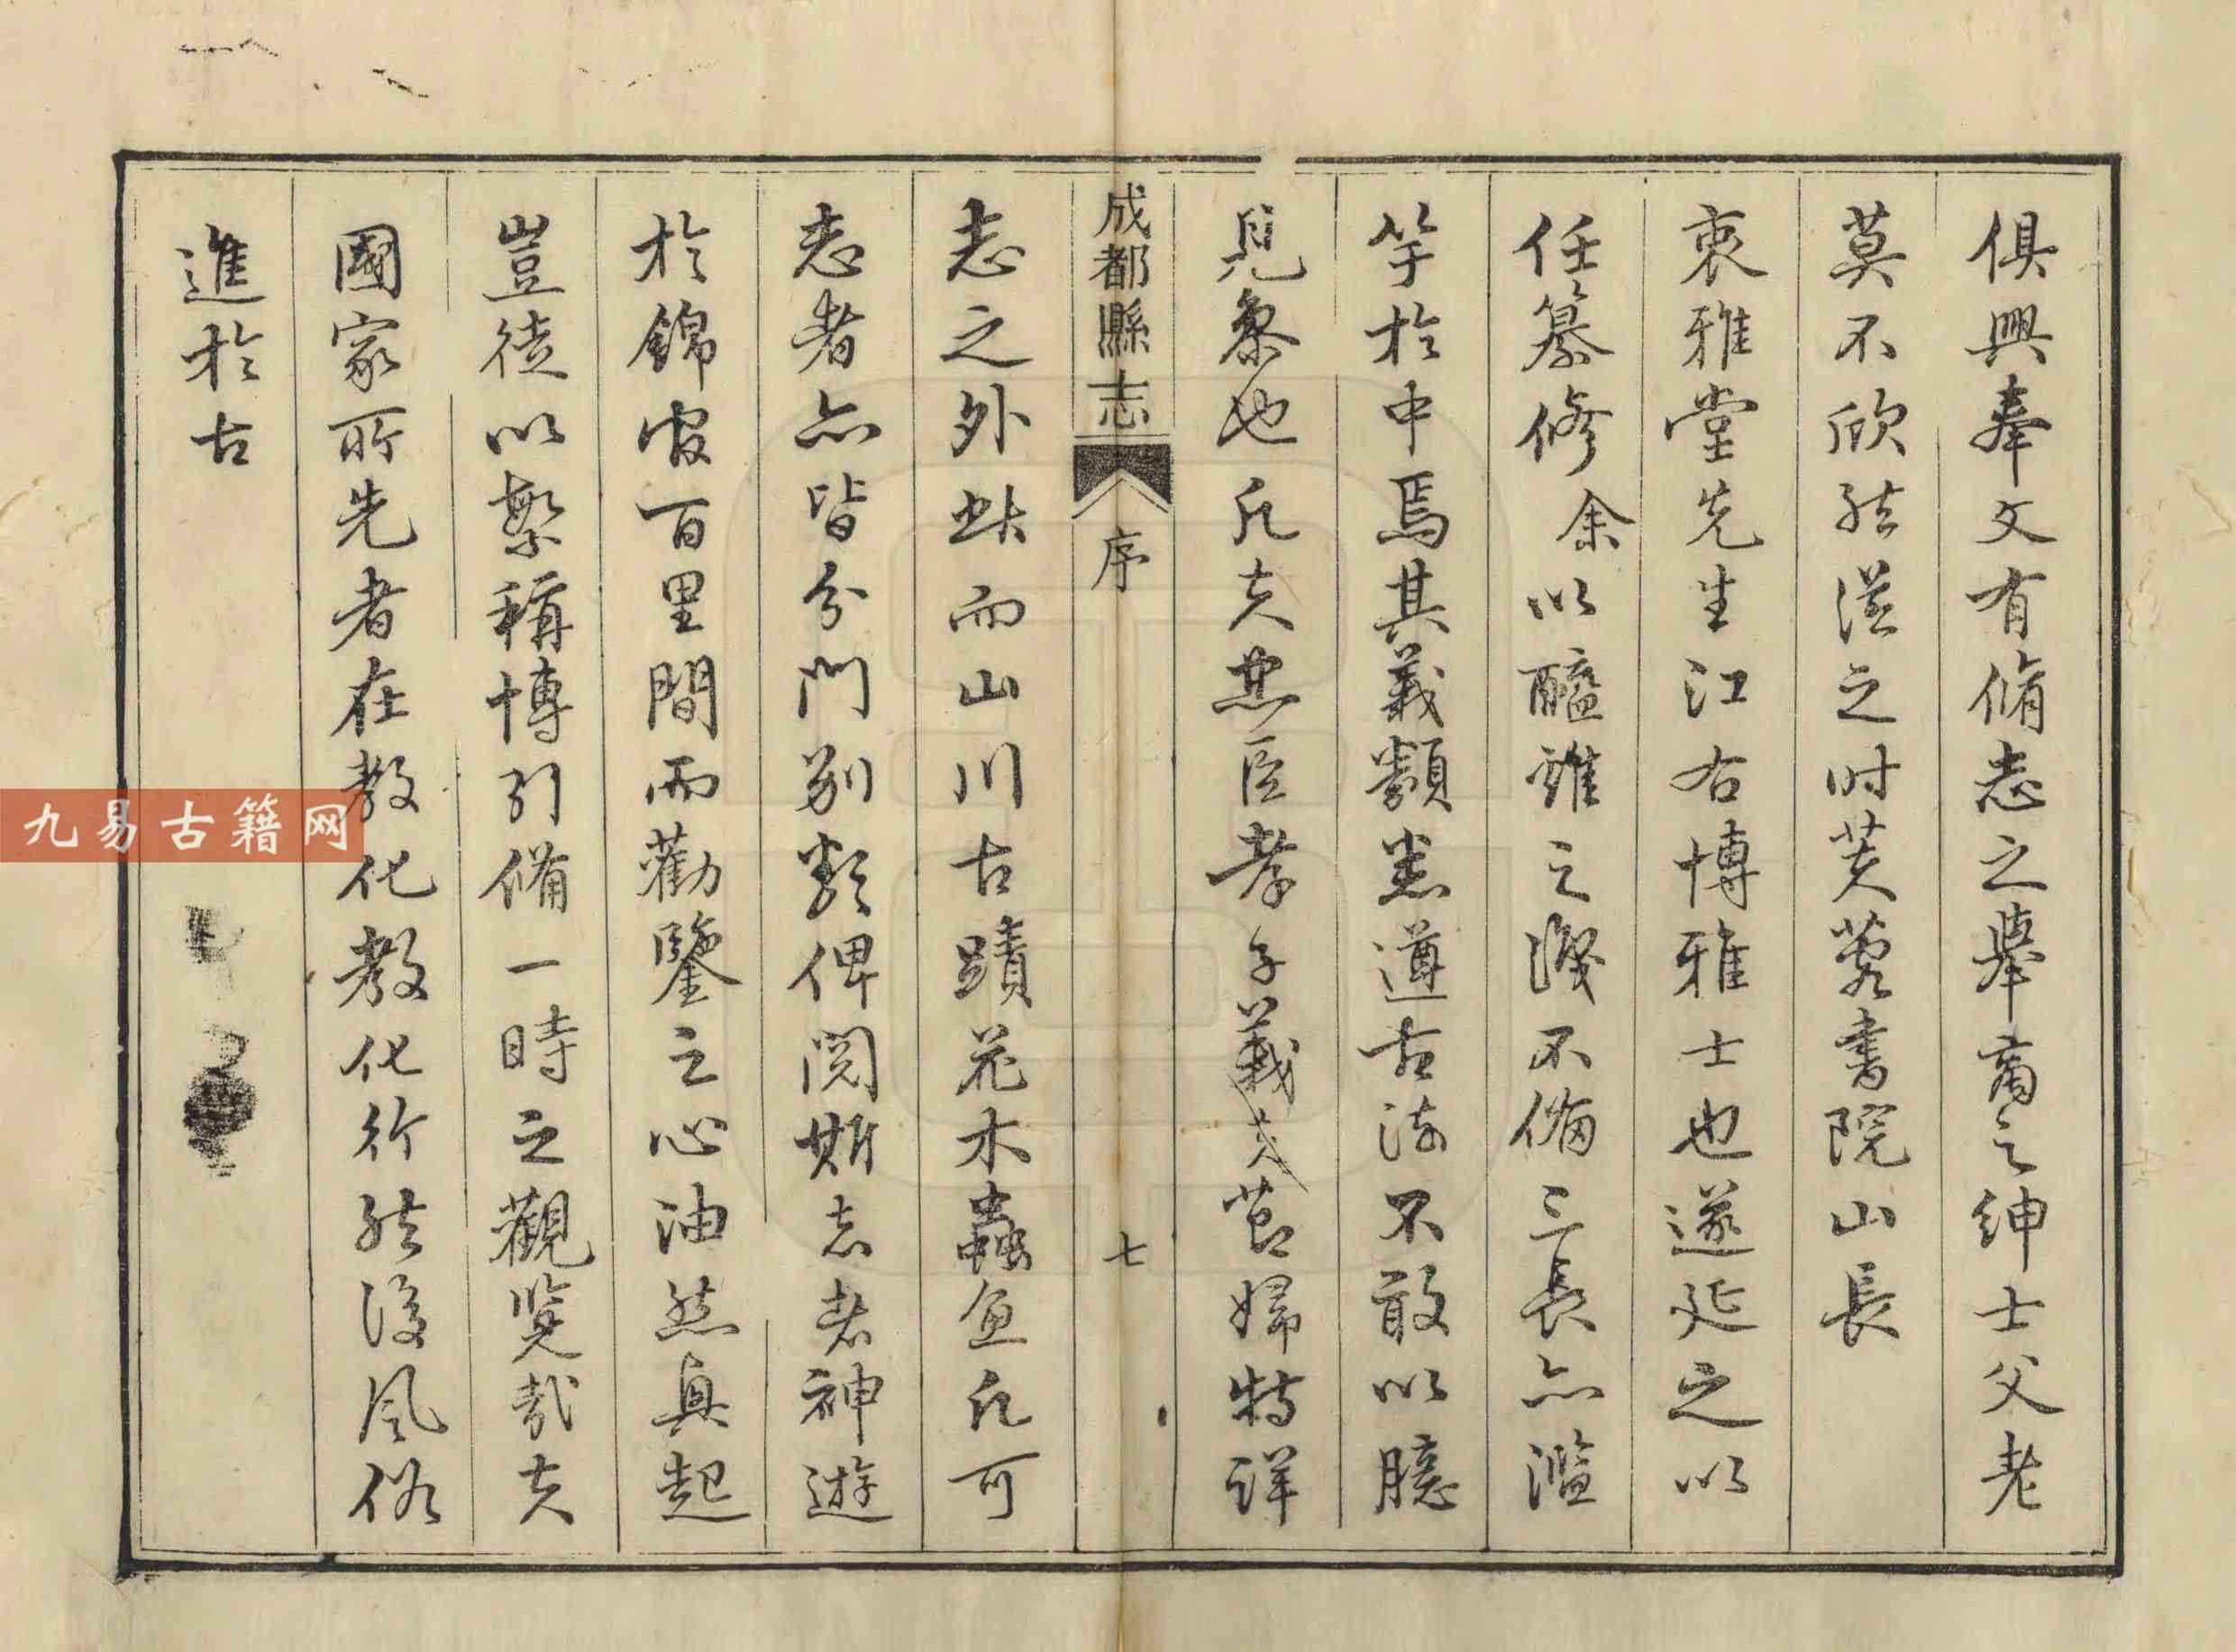 俱興奉文有脩志之舉商之紳士父老
莫不欣然從之時芙蓉書院山長
衷雅堂先生江右博雅士也遂延之以
任纂修余以醯雞之識不備三長亦濫
竽於中焉其義類悉遵古法不敢以臆
見參也凡夫忠臣孝子義夫節婦特詳
成都縣志
序
七
志之外此而山川古蹟花木蟲魚凡可
志者亦皆分門别類俾閱斯志者神遊
於錦官百里間而勸鑒之心油然與起
豈徒以繁稱博引備一時之觀覽哉夫
國家所先者在教化教化行然後風俗
進於古
九易古籍网